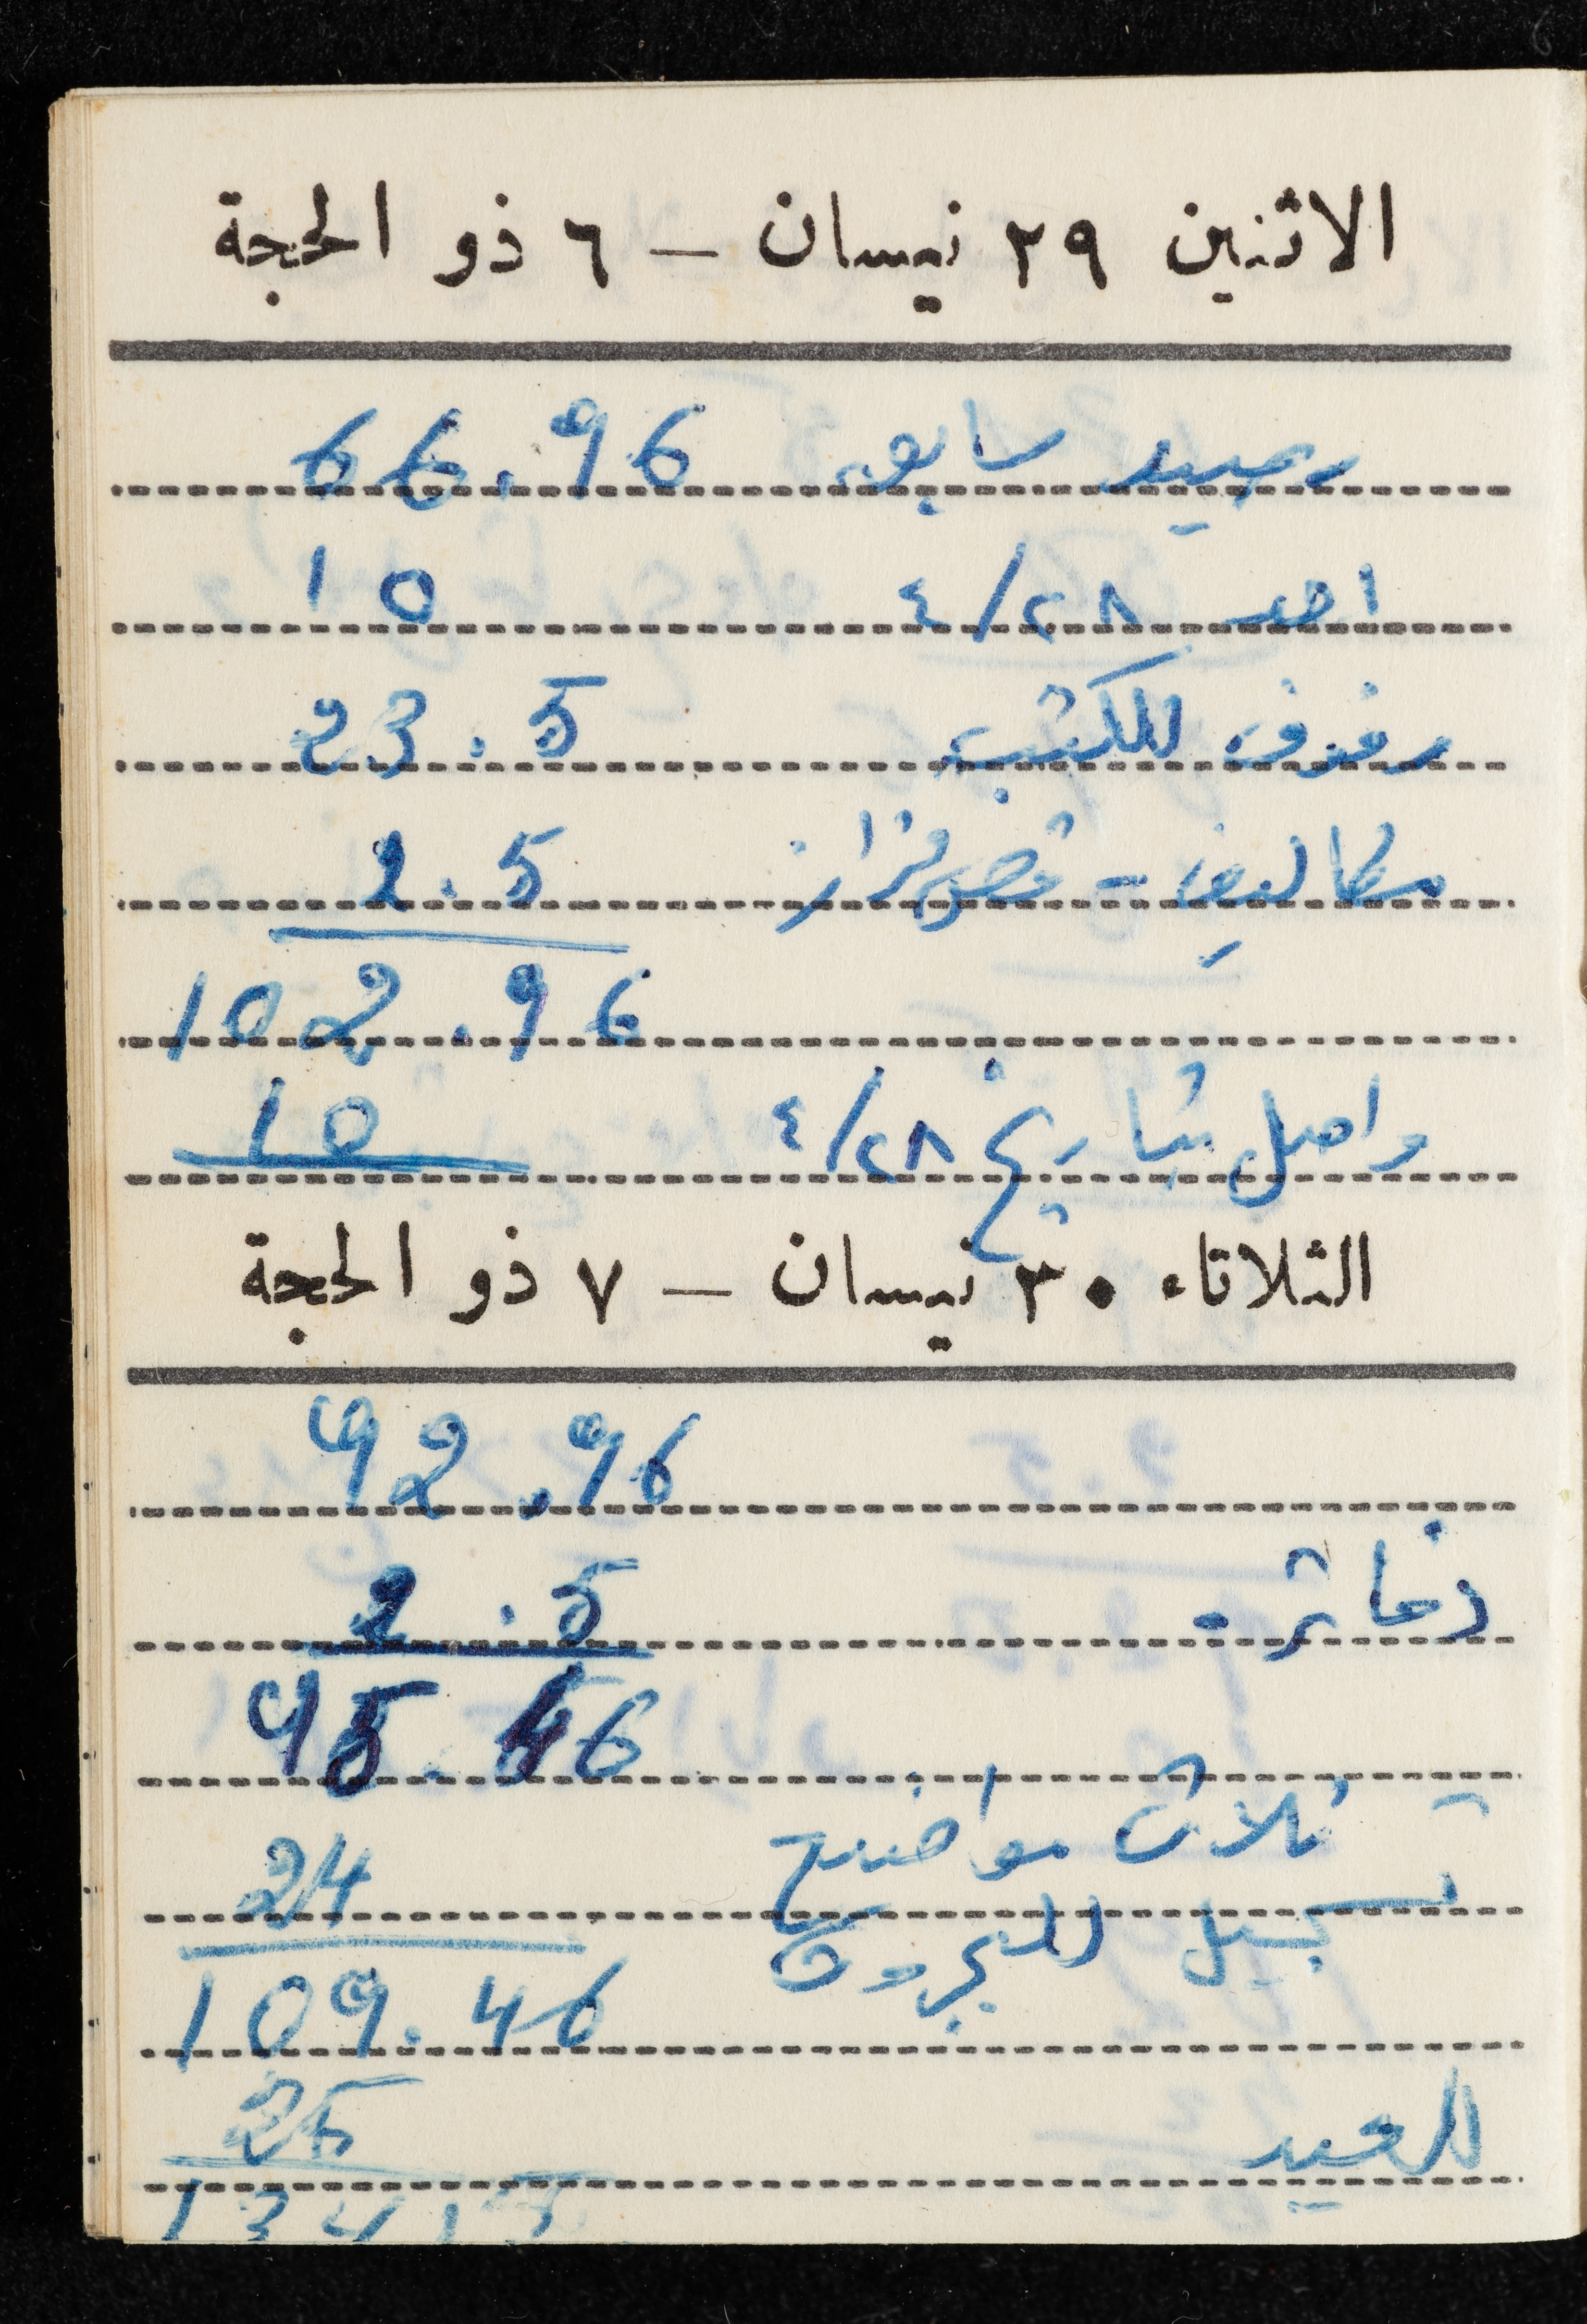 الاثنين ٢٩ نيسان — ٦ ذو الحجة
رصيد سابق 66.96
احد ٢٨/٤ 10
رفوف للكتب 23.5
مطاليف - قص قزاز 2.5
102.96
واصل بتاريخ ٢٨/٤ 10
الثلاثاء ٣٠ نيسان — ٧ ذو الحجة
92.96
دفاتر - 2.5
95.46
ثلاث مواضيع
24
تسجيل
109.46
للعيد 25
134.5